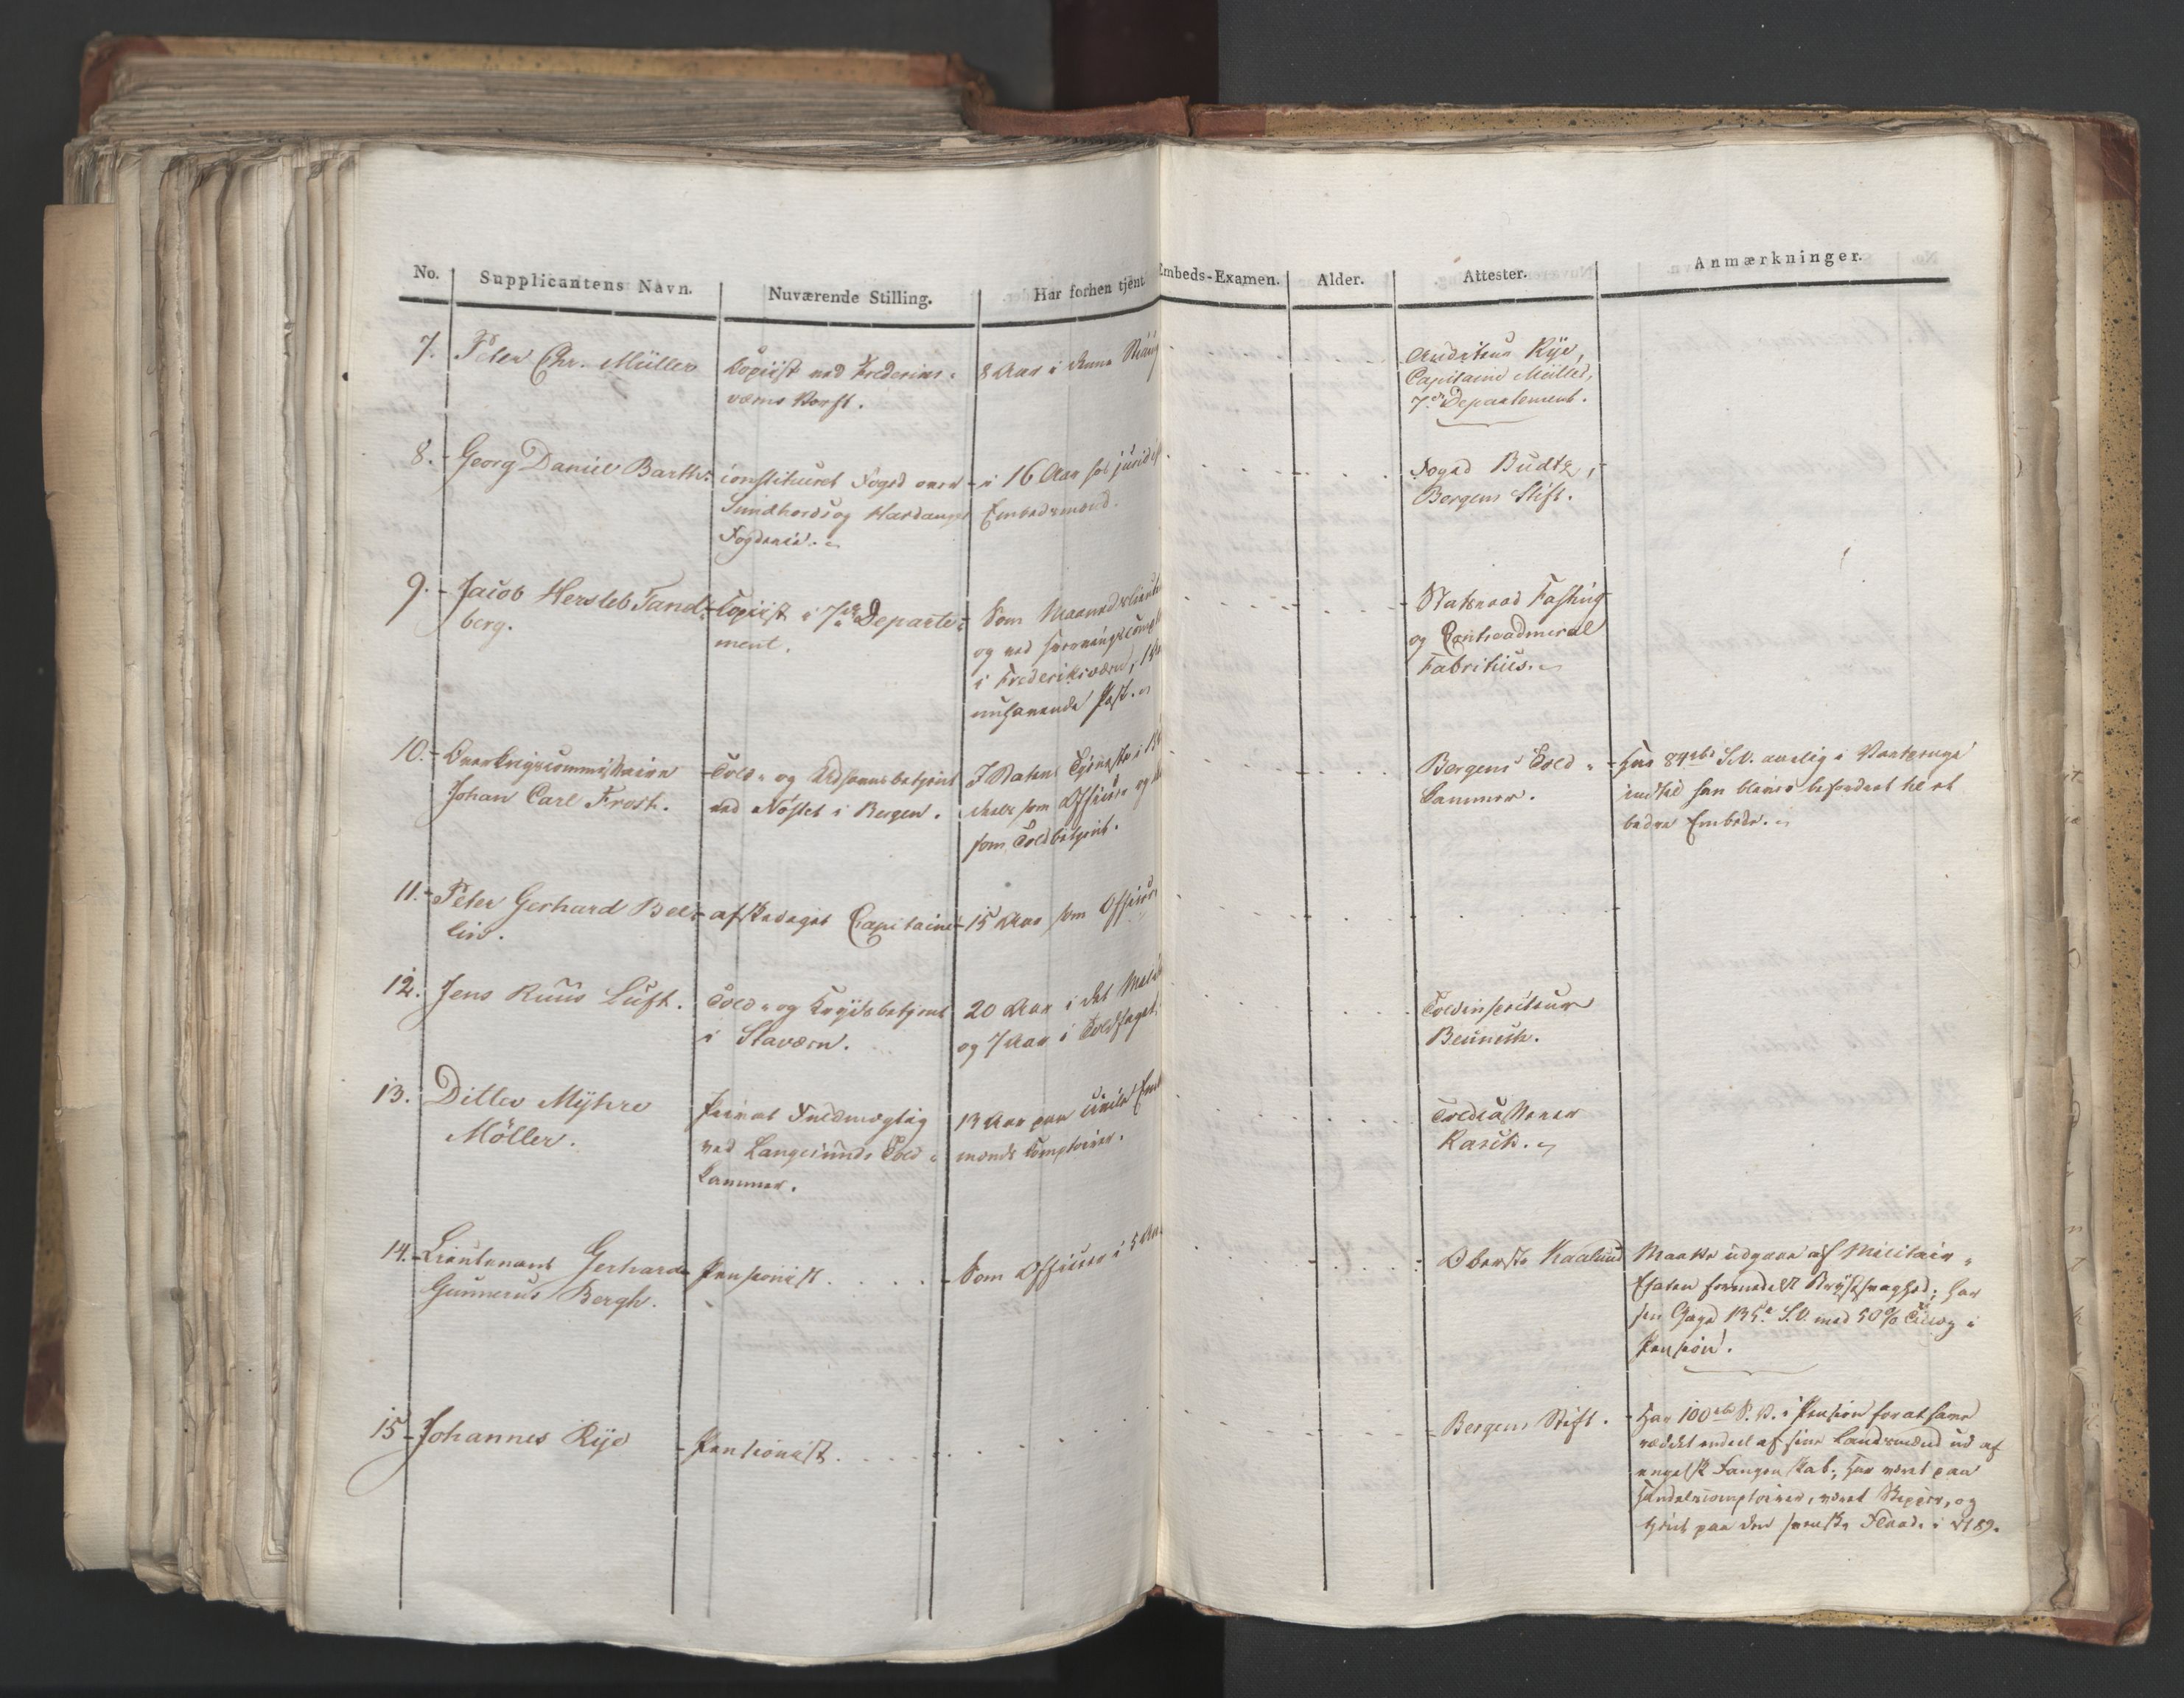 No. Supplicantens Navn. Nuværende Stilling. Har forhen tjent. Embeds-Examen. Alder. Attester. Anmærkninger.
7. Peter Chr. Müller
Copiist ved Frederiks-
værns Værft.
8 Aar i denne
Auditeur Rye,
Capitaine Müller,
7de Departement.
8. Georg Daniel Barth.
constitueret Foged over
Sundhords og Hardanger
Fogderie.
i 16 Aar for
Embedsmænd.
Foged Budtz,
Bergens Stift.
9. Jacob Hersleb Tand-
berg.
Copiist i 7de Departe-
ment.
Som
og ved
i Frederiksværn,
nuhavende Post.
Statsraad Fasting
og Contreadmiral
Fabritius.
10. Overkrigscommissair
Johan Carl Frost.
Told- og
ved Nöstet i Bergen.
I Statens Tjeneste i
deels som Officier og
som Toldbetjent.
Bergens Told-
kammer.
Har 84 rbd S.V. aarlig i Vartpenge
indtil han bliver befordret til et
bedre Embede.
11. Peter Gerhard Bel-
lin.
afskediget Capitaine
15 Aar som Officier
12. Jens Ruus Luft.
Told- og Krydsbetjent
i Staværn.
20 Aar i det
og 7 Aar i Toldfaget.
Toldinspecteur
Beunech.
13. Ditlev Myhre
Möller.
Privat Fuldmægtig
ved Langesunds Told-
kammer.
13 Aar paa civile
mænds Comptoirer.
Toldcasserer
Rasch.
14. Lieutenant Gerhard
Gunnerus Bergh.
Pensionist.
Som Officier i 5 Aar
Oberste Kaalund
Maatte udgaae af Militair-
Etaten formedelst Brystsvaghed; har
sin Gage 135 S.V. med 50% Tillæg i
Pension.
15. Johannes Rije
Pensionist.
Bergens Stift.
Har 100 rbd S.V. i Pension for at have
reddet endeel af sine Landsmænd ud af
engelsk Fangenskab; har været paa
Handelscomptoirer, været Skipper, og
tjent paa den svenske Flaade i 1789.